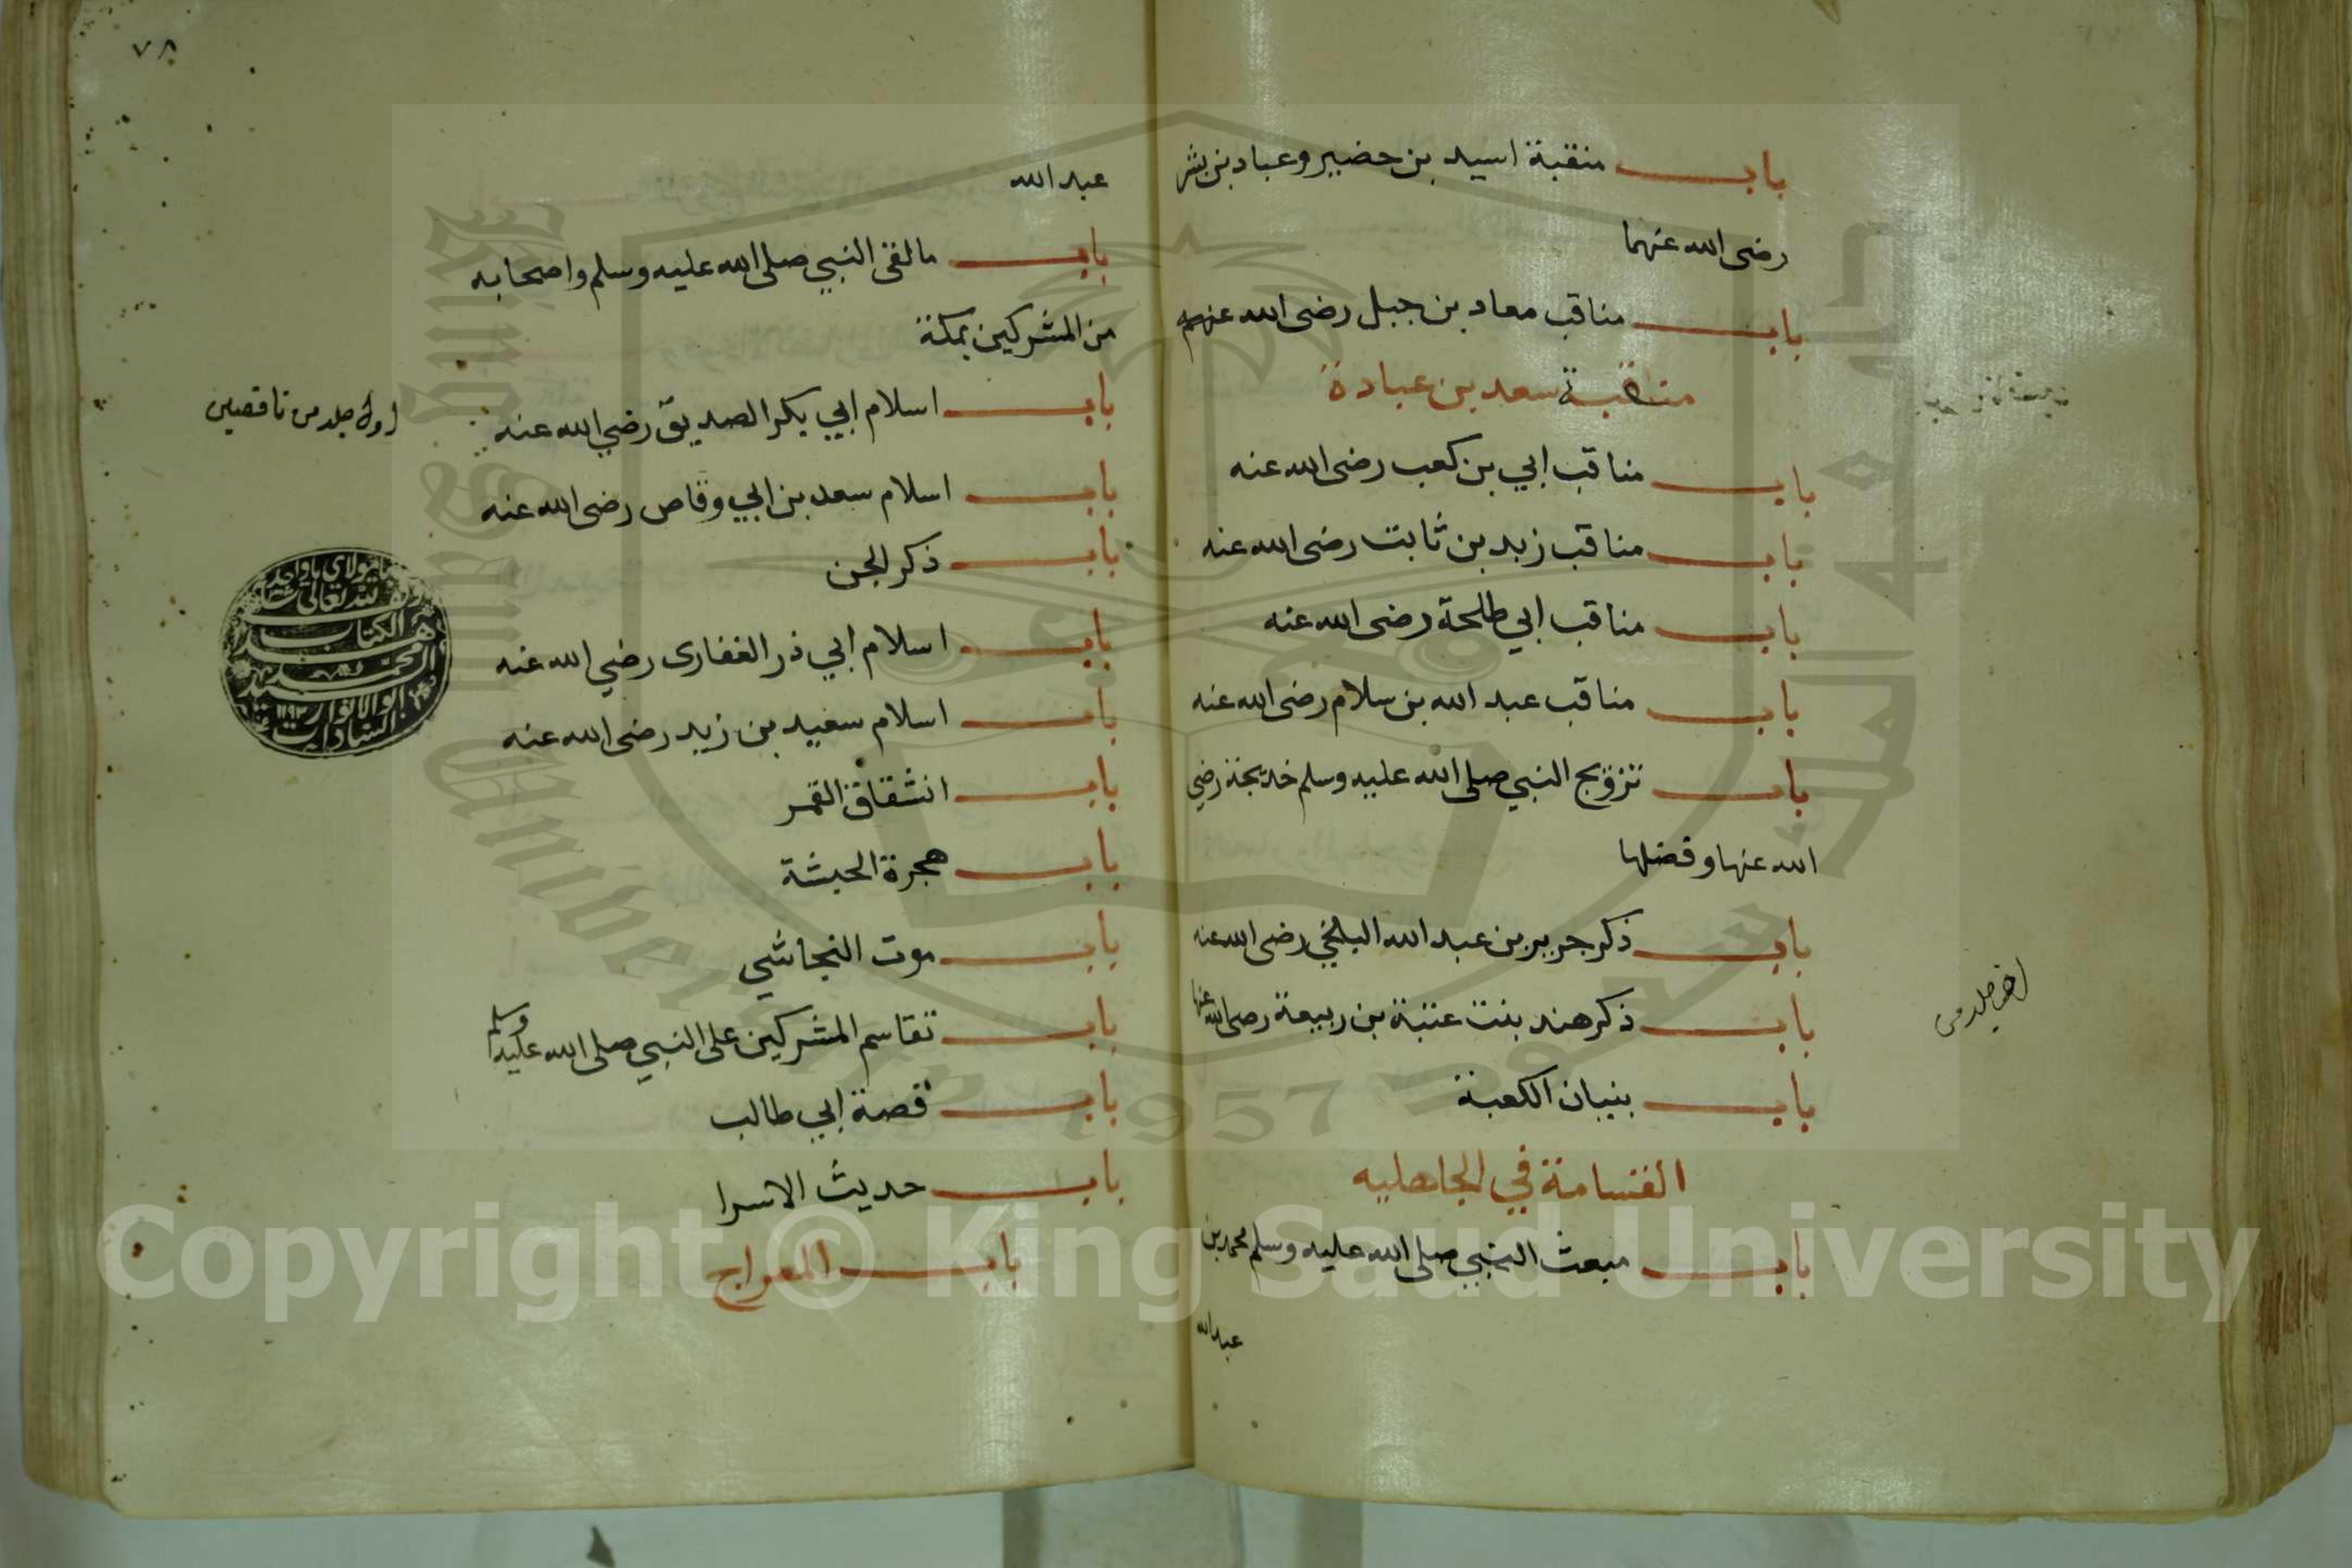 باب منقبة اسيد بن حضير وعباد بن بشر
رضى الله عنهما
باب مناقب معاد بن جبل رضى الله عنهم
منقبة سعد بن عبادة
باب مناقب ابي بن كعب رضى الله عنه
باب مناقب زيد بن ثابت رضى الله عنه
باب مناقب ابي طلحة رضى الله عنه
باب مناقب عبد الله بن سلام رضى الله عنه
باب تزويج النبي صلى الله عليه وسلم خديجة رضي
الله عنها وفضلها
باب ذكر جرير بن عبد الله البلخي رضى الله عنه
باب ذكر هند بنت عتبة بن ربيعة رضى الله عنها
باب بنيان الكعبة
القسامة في الجاهليه
باب مبعث النبي صلى الله عليه وسلم محمد بن
عبد الله
٧٨
عبد الله
باب مالقى النبي صلى الله عليه وسلم واصحابه
من المشركين بمكة
باب اسلام ابي بكر الصديق رضي الله عنه
باب اسلام سعد بن ابي وقاص رضى الله عنه
باب ذكر الجن
باب اسلام ابي ذر الغفارى رضي الله عنه
باب اسلام سعيد بن زيد رضى الله عنه
باب انشقاق القمر
باب هجرة الحبشة
باب موت النجاشي
باب تقاسم المشركين على النبي صلى الله عليه وسلم
باب قصة ابي طالب
باب حديث الاسرا
باب المعراج
لله تعالى
الكتاب
Copyright © King Saud University
King Saud University
1957